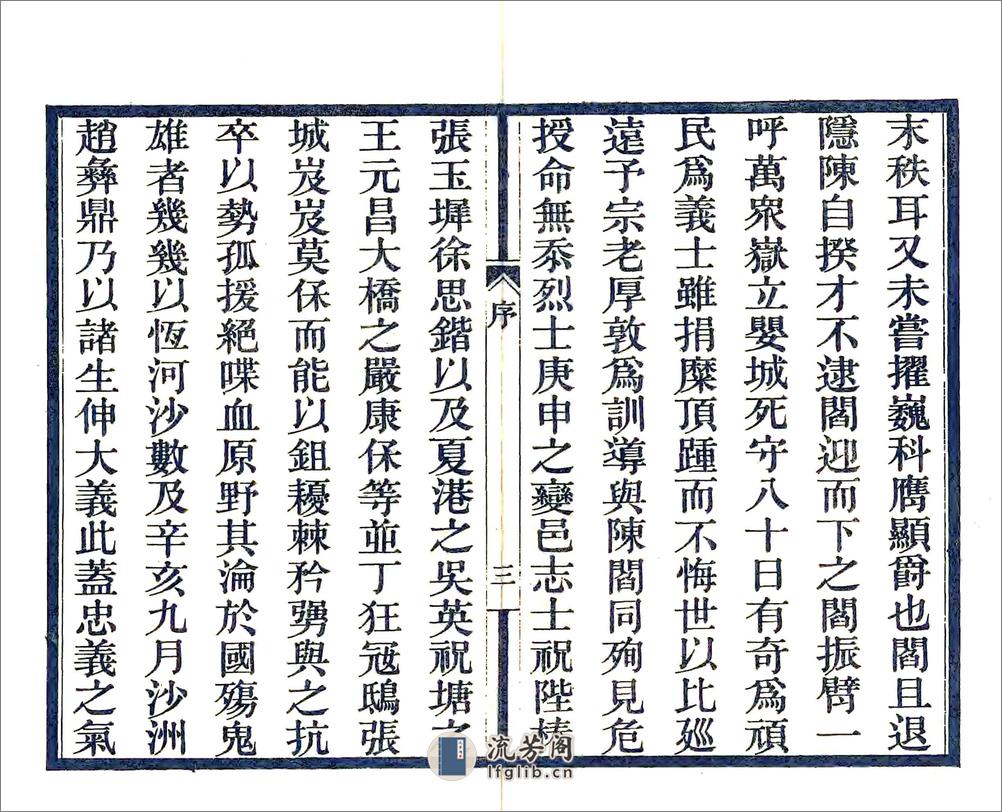 末秩耳又未嘗擢巍科膺顯爵也閻且退
隱陳自揆才不逮閻迎而下之閻振臂一
呼萬衆嶽立嬰城死守八十日有奇爲頑
民爲義士雖捐糜頂踵而不悔世以比廵
遠予宗老厚敦爲訓導與陳閻同殉見危
授命無忝烈士庚申之變邑志士祝陛椿
序
三
張玉墀徐思鍇以及夏港之吳英祝塘之
王元昌大橋之嚴康保等並丁狂寇鴟張
城岌岌莫保而能以鉏耰棘矜勥與之抗
卒以勢孤援絕喋血原野其淪於國殤鬼
雄者幾幾以恆河沙數及辛亥九月沙洲
趙彝鼎乃以諸生伸大義此蓋忠義之氣
流芳阁
lfglib.cn